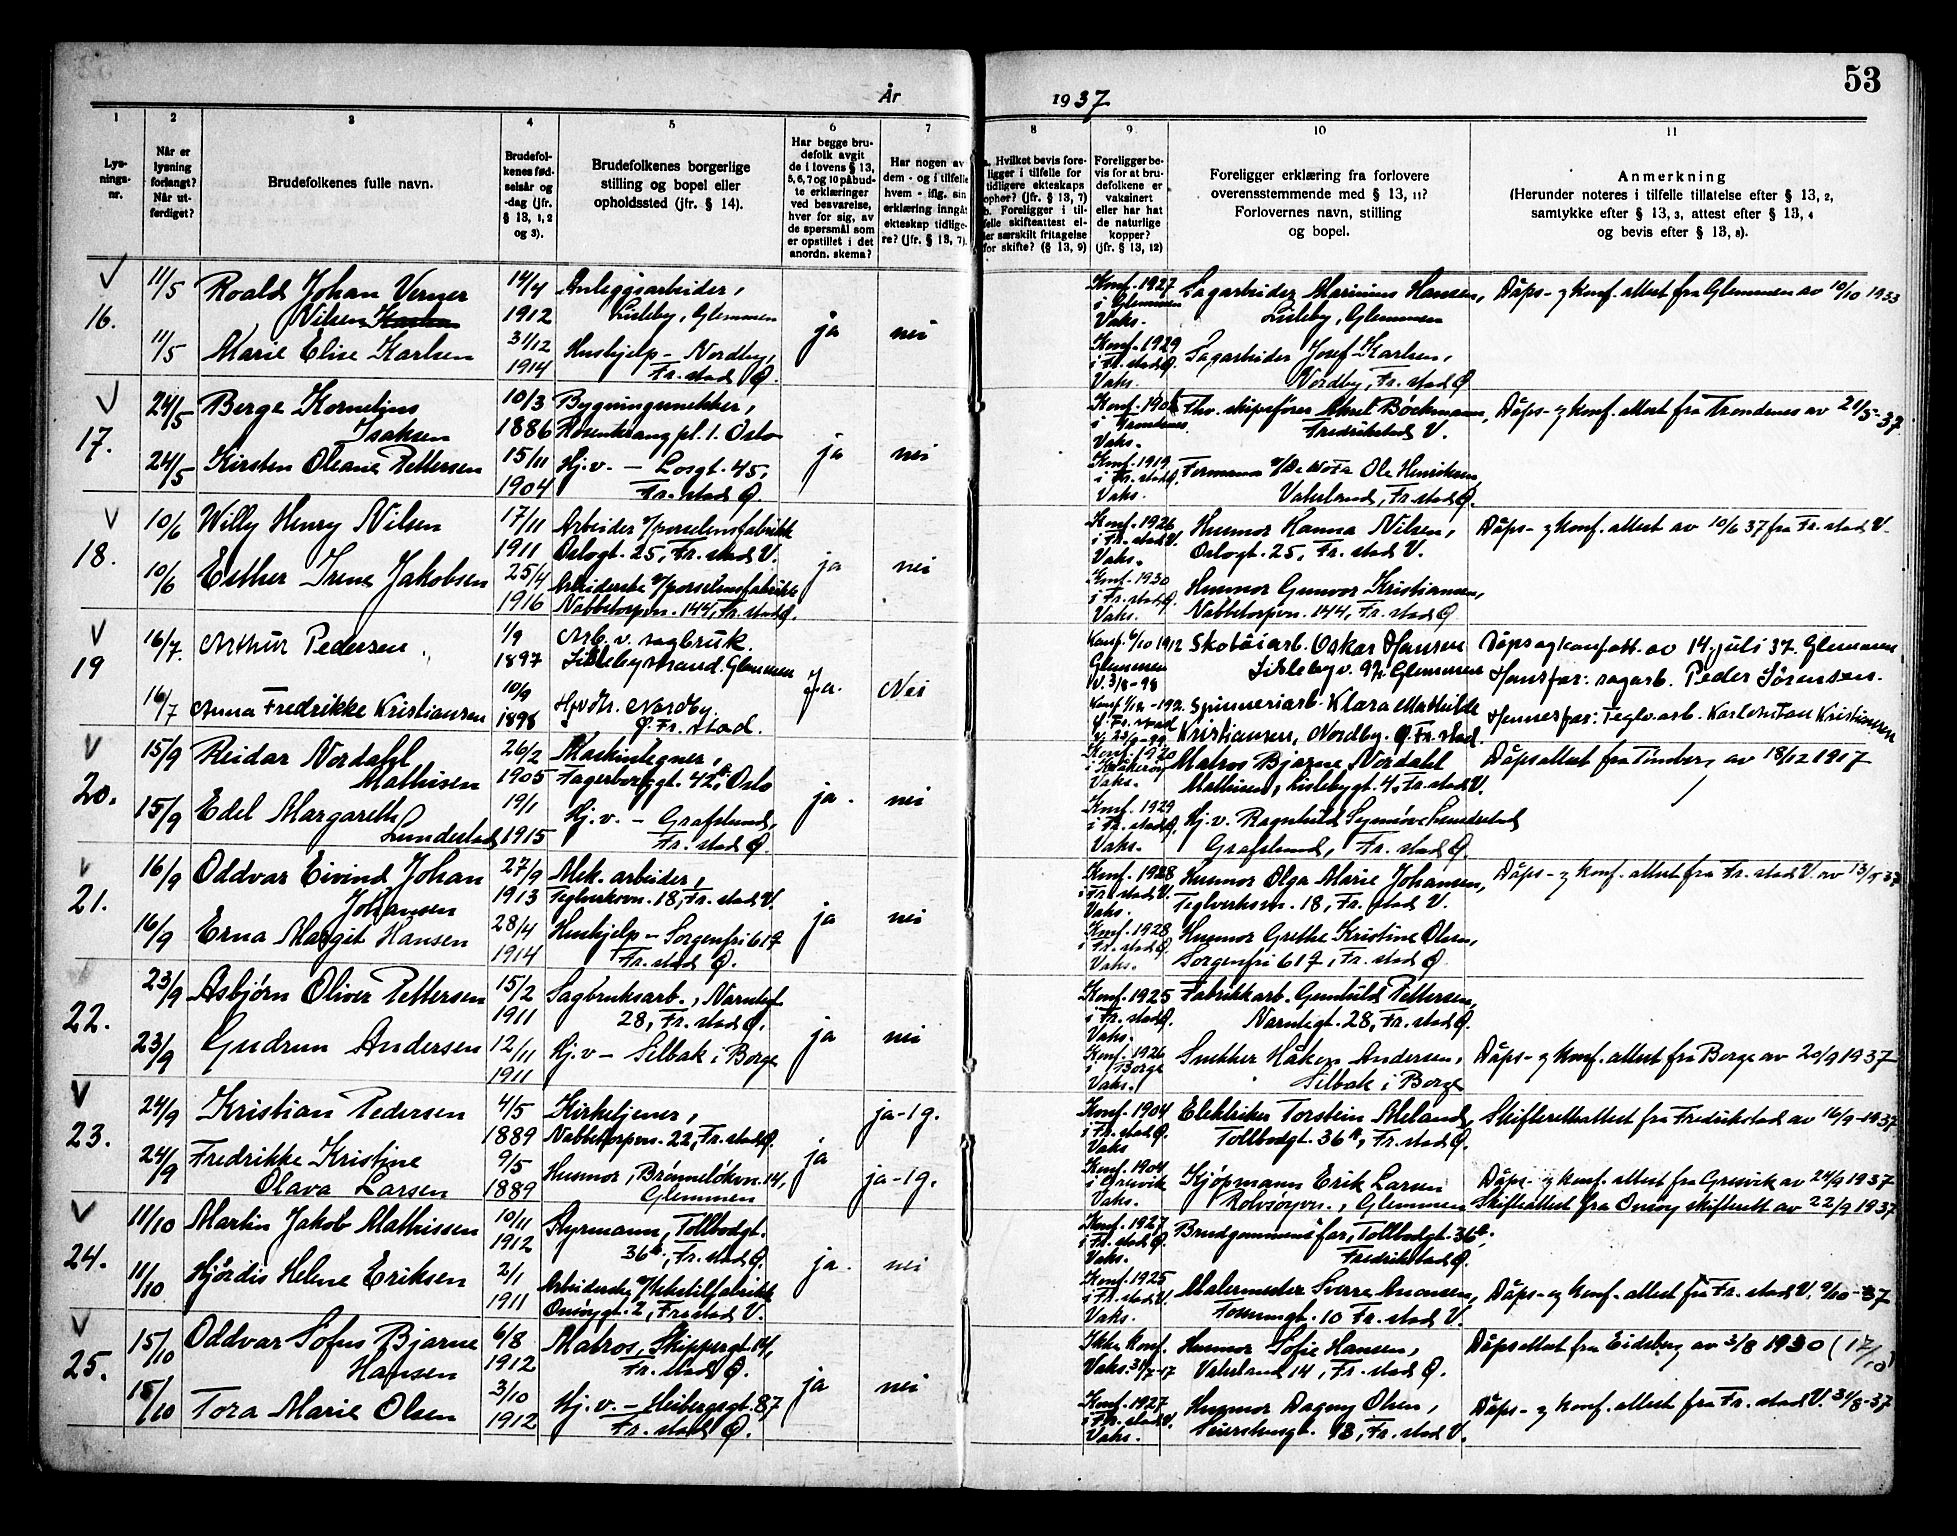 53
År 1937
1
2
3
4
5
6
7
8
9
10
11
Lys-
nings-
nr.
Når er
lysning
forlangt?
Når ut-
ferdiget?
Brudefolkenes fulle navn.
Brudefol-
kenes fød-
selsår og
-dag (jfr.
§ 13, 1, 2
og 3).
Brudefolkenes borgerlige
stilling og bopel eller
opholdssted (jfr. § 14).
Har begge bru-
defolk avgit
de i lovens § 13,
5, 6, 7 og 10 påbud-
te erklæringer
ved besvarelse,
hver for sig, av
de spørsmål som
er opstillet i det
anordn. skema?
Har nogen av
dem - og i tilfelle
hvem - iflg. sin
erklæring inngåt
ekteskap tidlige-
re? (jfr. § 13, 7).
a. Hvilket bevis fore-
ligger i tilfelle for
tidligere ekteskaps
ophør? (jfr. § 13, 7)
b. Foreligger i til-
felle skifteattest el-
ler særskilt fritagelse
for skifte? (§ 13, 9)
Foreligger be-
vis for at bru-
defolkene er
vaksinert
eller har hat
de naturlige
kopper?
(jfr. § 13, 12)
Foreligger erklæring fra forlovere
overensstemmende med § 13, 11?
Forlovernes navn, stilling
og bopel.
Anmerkning
(Herunder noteres i tilfelle tillatelse efter § 13, 2,
samtykke efter § 13, 3, attest efter § 13, 4
og bevis efter § 13, 8).
16.
11/5 Roald Johan Verner
Nilsen
14/4
1912
Anleggsarbeider,
Lisleby, Glemmen
ja
nei
Konf. 1927
i Glemmen
Vaks.
Sagarbeider Marinius Hansen,
Lisleby, Glemmen
Dåps- og konf. attest fra Glemmen av 10/10 1933
11/5 Marie Elise Karlsen
31/12
1914
Hushjelp - Nordby,
Fr.stad Ø.
Konf. 1929
i Fr.stad Ø.
Vaks.
Sagarbeider Josef Karlsen,
Nordby, Fr.stad Ø
17.
24/5 Berge Kornelius
Isaksen
10/3
1886
Bygningssnekker,
Rosenkrang pl. 1. Oslo
ja
nei
i Trondenes
Vaks.
Fhv. skipsfører Aksel Böckmann,
Fredrikstad V.
Dåps- og konf. attest fra Trondenes av 21/5-37
24/5 Kirsten Oleane Pettersen
15/11
1904
Hj.v. - Losgt. 45,
Fr.stad Ø.
Konf. 1919
i Fr.stad Ø.
Vaks.
Formann Ole Henriksen,
Vaterland, Fr.stad Ø.
18.
10/6 Willy Henry Nilsen
17/11
1911
Arbeider v/porselensfabrikk
Oslogt. 25, Fr.stad V.
ja
nei
Konf. 1926
i Fr.stad V.
Vaks.
Husmor Hanna Nilsen,
Oslogt. 25, Fr.stad V.
Dåps- og konf. attest av 10/6 37 fra Fr.stad V.
10/6 Esther Irene Jakobsen
25/4
1916
Arbeiderske v/porselensfabrikk
Nabbetorpvn. 144, Fr.stad Ø.
Konf. 1930
i Fr.stad Ø.
Vaks.
Husmor Gunvor Kristiansen,
Nabbetorpvn. 144, Fr.stad Ø
19
16/7. Arthur Pedersen
1/9
1897
Arb. v. sagbruk.
Lislebystrand. Glemmen
Ja.
Nei
Konf. 6/10 1912
Glemmen
V. 3/8-98
Skotöiarb. Oskar Hansen
Lislebyv. 97. Glemmen
Dåps og konf att. av 14. juli 37. Glemmen
Hans far: sagarb. Peder Sørensen.
16/7 Anna Fredrikke Kristiansen
10/9
1898
Hjv.Hr. Nordby.
Ø. Fr. stad.
Ø. Fr. stad
Spinneriarb. Klara Mathilde
Kristiansen, Nordby. Ø. Fr. stad.
Hennes far: Teglv.arb. Karl Kristiansen
20.
15/9 Reidar Nordahl
Mathisen
26/2
1905
Maskintegner,
Fagerborggt. 42b, Oslo
ja.
nei
Konf. 1920
i Kråkerøy
Vaks.
Matros Bjarne Nordahl
Mathisen, Lislebygt. 4, Fr.stad V.
Dåpsattest fra Tønsberg av 18/12 1917
15/9 Edel Margareth
Lundestad
19/1
1915
Hj.v. - Grafslund,
Fr.stad Ø.
Konf. 1929
i Fr.stad Ø.
Vaks.
Hj.v. Ragnhild Synnöve Lundestad
Grafslund, Fr.stad Ø.
21.
16/9 Oddvar Eivind Johan
Johansen
27/9
1913
Mek. arbeider,
Teglverksvn. 18, Fr.stad V.
ja
nei
Konf. 1928
i Fr.stad V.
Vaks.
Husmor Olga Marie Johansen,
Teglverksvn. 18, Fr.stad V.
Dåps- og konf. attest fra Fr.stad V. av 13/5 37
16/9 Erna Margit Hansen
28/4
1914
Hushjelp - Sorgenfri 617
Fr.stad Ø.
Konf. 1928
i Fr.stad Ø.
Vaks.
Husmor Grethe Kristine Olsen,
Sorgenfri 617, Fr.stad Ø
22.
23/9 Asbjørn Oliver Pettersen
15/2
1911
Sagbruksarb., Narntegt.
28, Fr.stad Ø.
ja
nei
Konf. 1925
i Fr.stad Ø.
Vaks.
Fabrikkarb. Gunhild Pettersen,
Narntegt. 28, Fr.stad Ø.
23/9 Gudrun Andersen
12/11
1911
Hj.v - Selbak i Borge
Konf. 1926
i Borge
Vaks.
Snekker Håken Andersen,
Selbak i Borge
Dåps- og konf. attest fra Borge av 20/9 1937
23.
24/9 Kristian Pedersen
4/5
1889
Kirketjener,
Nabbetorpvn. 22, Fr.stad Ø.
ja
ja-1 g.
Konf. 1904
i Fr.stad Ø.
Vaks
Elektriker Torstein Meland,
Tollbodgt. 36b, Fr.stad Ø.
Skifterettattest fra Fredrikstad av 16/9-1937
24/9 Fredrikke Kristine
Olava Larsen
9/5
1889
Husmor, Brönneløkvn. 14,
Glemmen
ja-1 g.
Konf. 1904
i Gressvik
Vaks.
Kjöpmann Erik Larsen
Rolvsøyvn., Glemmen
Dåps- og konf. attest fra Gresvik av 24/9 1937
Skifteattest fra Onsøy skifterett av 22/9 1937
24.
11/10 Martin Jakob Mathissen
10/11
1912
Styrmann, Tollbodgt.
36b, Fr.stad Ø.
ja.
nei
Konf. 1927
i Fr.stad Ø.
Vaks.
Brudgommens far, Tollbodgt. 36b,
Fredrikstad Ø.
11/10 Hjördis Helene Eriksen
2/1
1911
Arbeiderske v/tekstilfabrikk
Onsöygt. 2, Fr.stad V.
Konf. 1925
i Fr.stad V.
Vaks.
Malermester Sverre Aronsen,
Fossumgt. 10 Fr.stad V.
Dåps- og konf. attest fra Fr.stad V. 9/10-37
25.
15/10 Oddvar Sofus Bjarne
Hansen
6/8
1912
Matros, Skippergt. 14,
Fr.stad Ø.
ja
nei
Ikke konf.
Vaks.
Husmor Sofie Hansen,
Vaterland 14, Fr.stad Ø.
Dåpsattest fra Eidsberg av 3/8 1930 (17/10)
15/10 Tora Marie Olsen
3/10
1912
Hj.v. - Heibergsgt. 87
Fr.stad Ø.
Konf. 1927
i Fr.stad V.
Vaks.
Husmor Dagny Olsen,
Seierstensgt. 13, Fr.stad V.
Dåps- og konf. attest fra Fr.stad V. 31/8-37